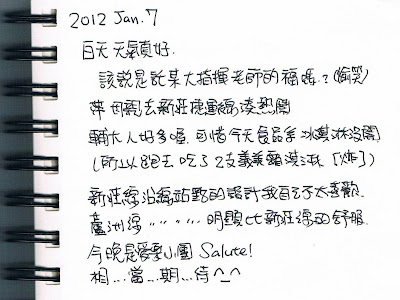 2012 Jan. 7
白天天氣真好.
該說是託某大指揮老師的福嗎?(偷笑)
伴母親去新莊捷運線湊熱鬧
輔大人好多喔, 可惜今天食品系冰淇淋沒開
(所以跑去吃了2支義美霜淇淋 [炸])
新莊線沿線站點的設計我不太喜歡.
蘆洲線〃〃〃〃〃明顯比新莊線的舒服
今晚是愛樂小團 Salute!
相...當...期...待^_^